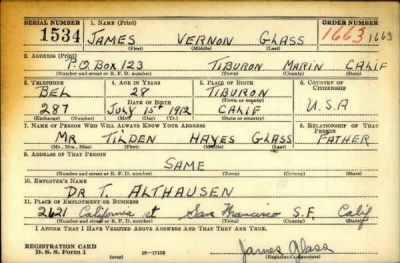 SERIAL NUMBER 1. NAME (Print) ORDER NUMBER
1534 JAMES VERNON GLASS 1663 1663
(First) (Middle) (Last)
2. ADDRESS (Print)
P.O. BOX 123 TIBURON MARIN CALIF
(Number and street or R. F. D. number) (Town) (County) (State)
3. TELEPHONE 4. AGE IN YEARS 5. PLACE OF BIRTH 6. COUNTRY OF CITIZENSHIP
BEL 28 TIBURON
DATE OF BIRTH (Town or county)
287 JULY 15th 1912 CALIF U.S.A
(Mo.) (Day) (Yr.) (State or country)
7. NAME OF PERSON WHO WILL ALWAYS KNOW YOUR ADDRESS 8. RELATIONSHIP OF THAT PERSON
MR TILDEN HAYES GLASS FATHER
(Mr., Mrs., Miss) (First) (Middle) (Last)
9. ADDRESS OF THAT PERSON
SAME
(Number and street or R. F. D. number) (Town) (County) (State)
10. EMPLOYER'S NAME
DR T. ALTHAUSEN
11. PLACE OF EMPLOYMENT OR BUSINESS
2621 California st San Francisco S.F. Calif
(Number and street or R. F. D. number) (Town) (County) (State)
I AFFIRM THAT I HAVE VERIFIED ABOVE ANSWERS AND THAT THEY ARE TRUE.
REGISTRATION CARD
D. S. S. Form 1 16-17105 James Glass
(Registrant's signature)